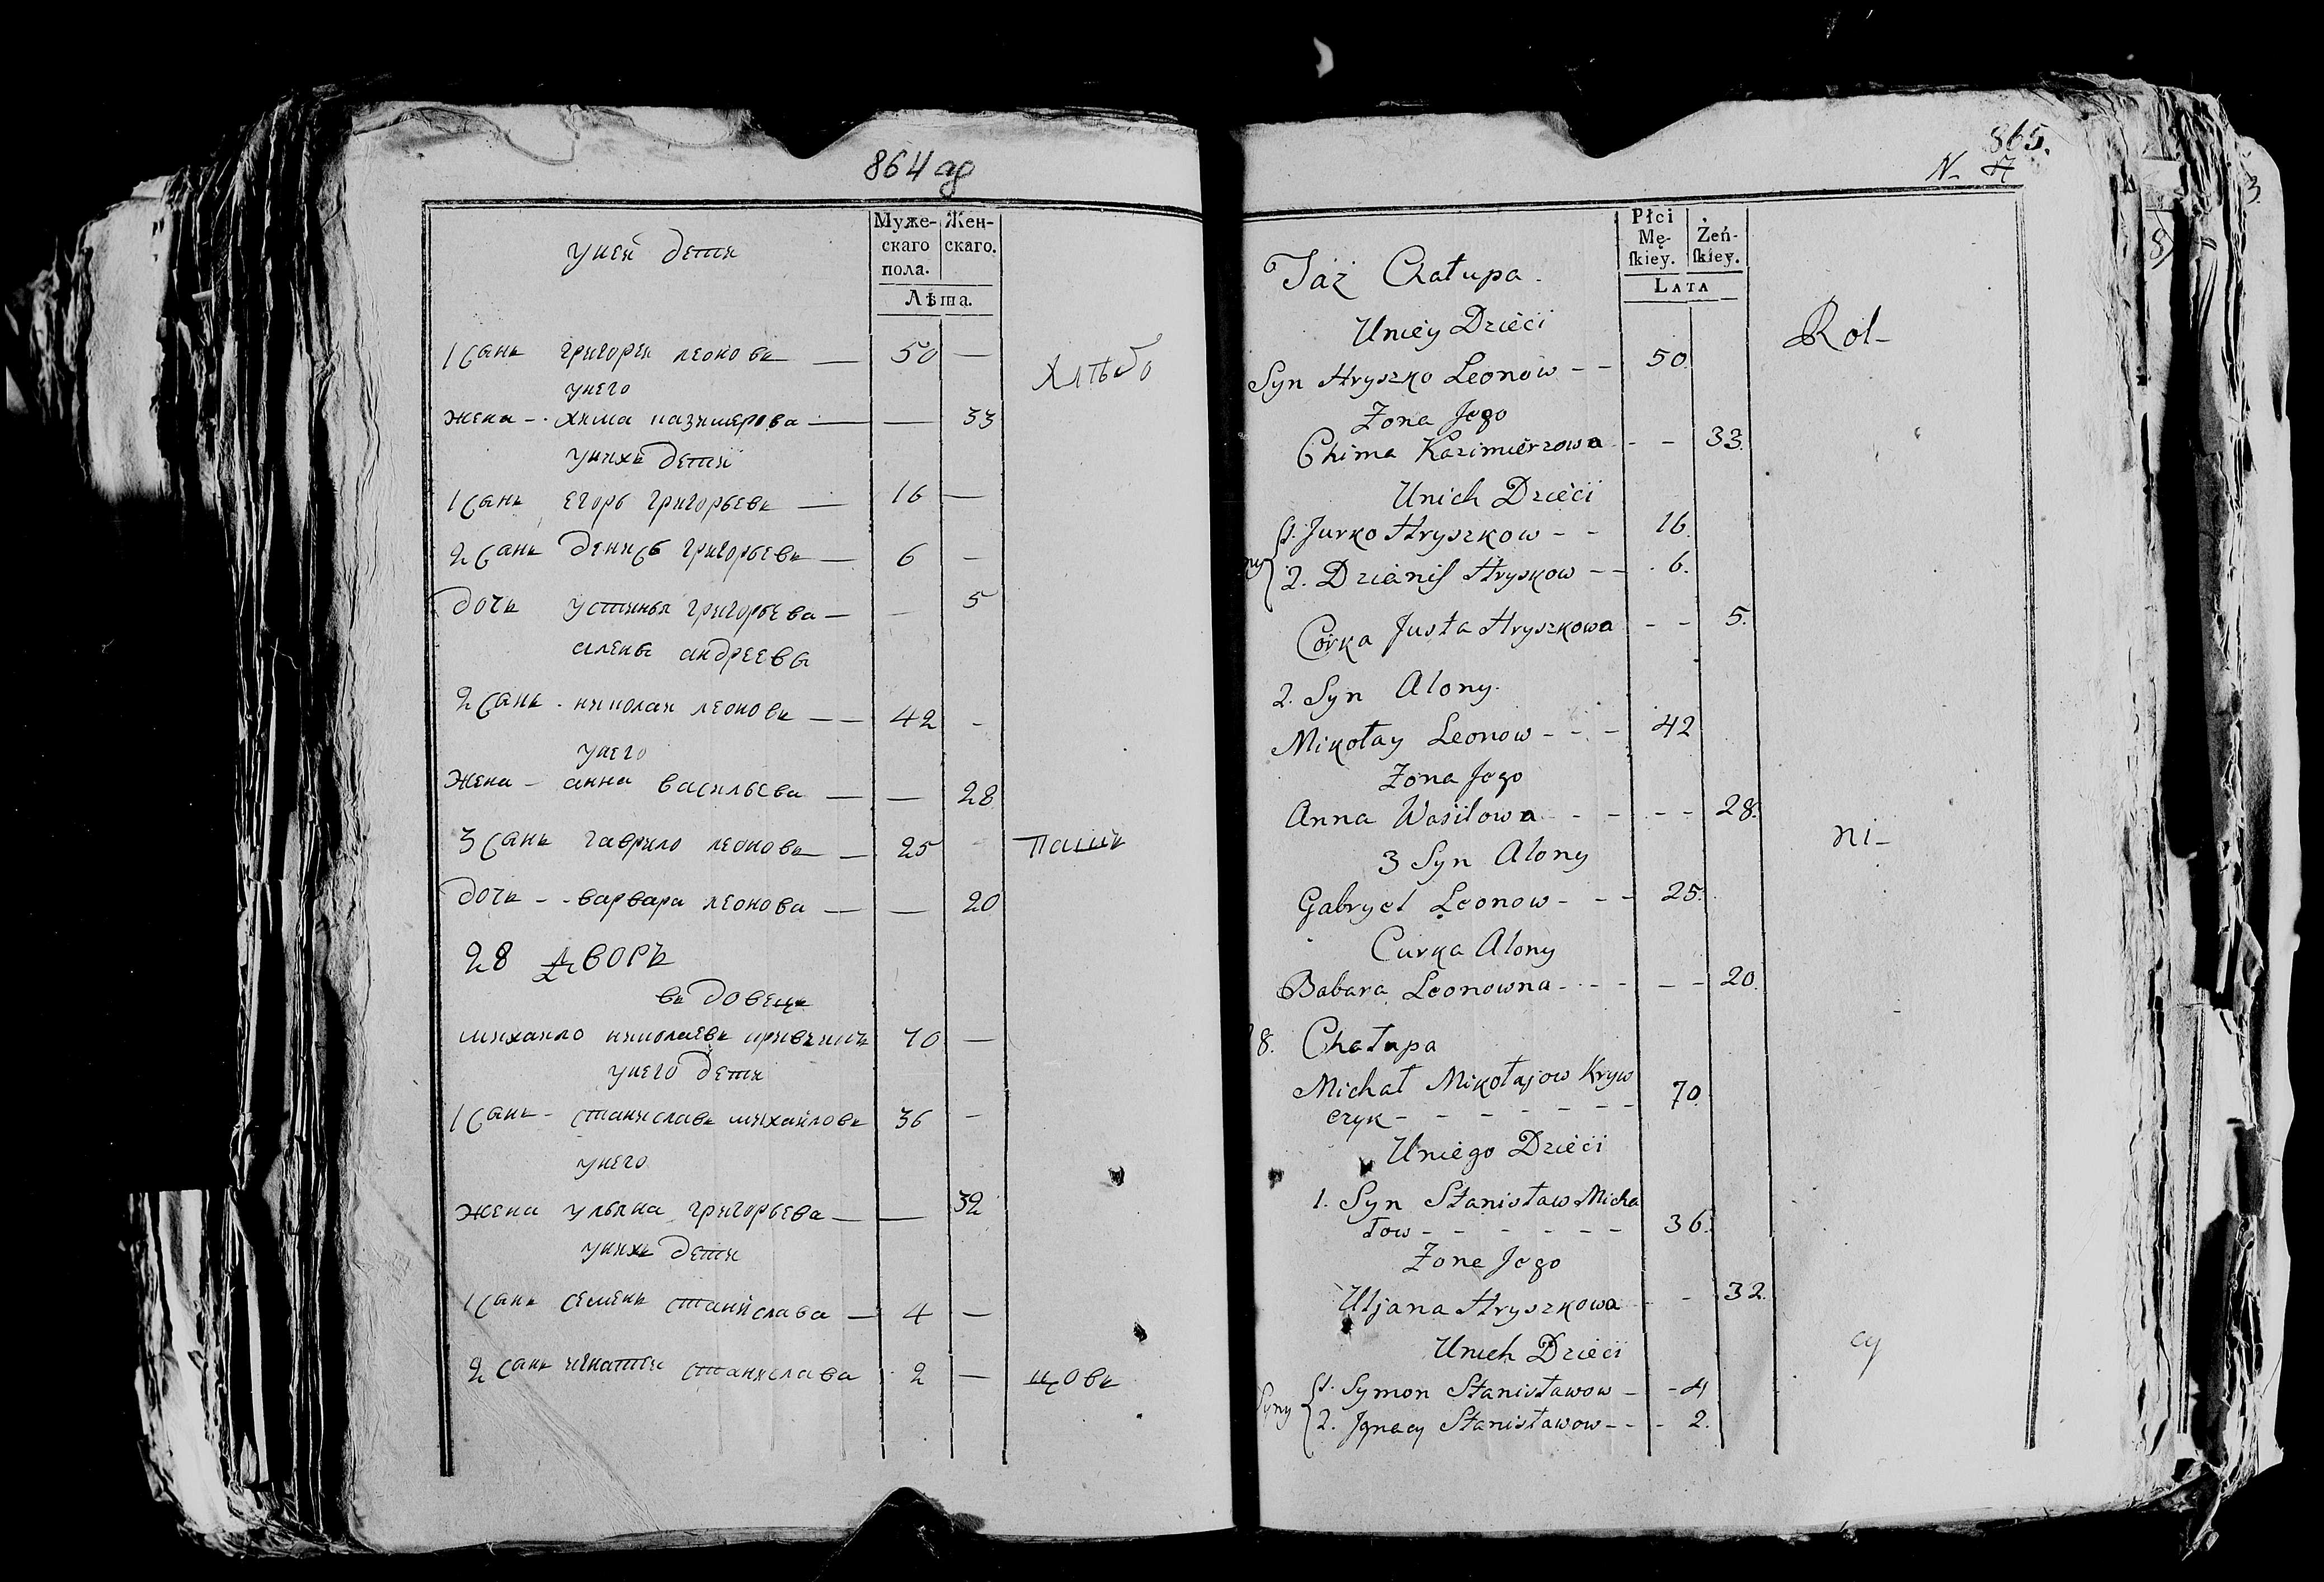 864 об
Муже-
скаго
пола.
Жен-
скаго.
Лѣта.
унеи дети
1 Сынъ григореи леоновъ — 50 —
унего
жена - химa казимерова — — 33
унихъ детиi
1 Сынъ егоръ григорьевъ — 16 —
2 Сынъ денисъ григорьевъ — 6 —
дочъ устинья григорьева — — 5
алены андреевы
2 Сынъ - николаи леоновъ — 42 -
унего
жена - анна васильева — — 28
3 Сынъ гаврило леоновъ — 25 -
дочъ - - варвара леонова — — 20
28 дворъ
вдовецъ
михаило николаевъ кривчикъ 70 —
унего дети
1 Сынъ - станиславъ михаиловъ 36 -
унего
жена ульяна григорьева — — 32
унихъ дети
1 Сынъ семенъ станислава — 4 —
2 Сынъ игнатеи станислава 2 —
Хлѣбо
паши
цовъ
865.
N. 17
Płci
Mę-
skiey.
Żeń-
skiey.
LATA
Taż Chałupa.
Uniey Dzieci
Syn Hryszko Leonow - - 50.
Żona Jego
Chima Kazimierzowa - - 33.
Unich Dzieci
1. Jurko Hryszkow - - 16.
2. Dzienis Hryskow - - 6.
Córka Justa Hryszkowa - - 5.
2. Syn Alony.
Mikołay Leonow - - - 42
Żona Jego
Anna Wasilowa - - - - 28.
3 Syn Alony
Gabryel Leonow - - - 25.
Curka Alony
Babara Leonowna - - - - - 20.
8. Chałupa
Michał Mikołajow Kryw
czyk - - - - - - - 70.
Uniego Dzieci
1. Syn Stanisław Micha
łow - - - - - - 36.
Żona Jego
Uljana Hryszkowa - - 32.
Unich Dzieci
Syny 1. Symon Stanisławow - - 4
2. Jgnacy Stanisławow - - - 2.
Rol-
ni-
cy